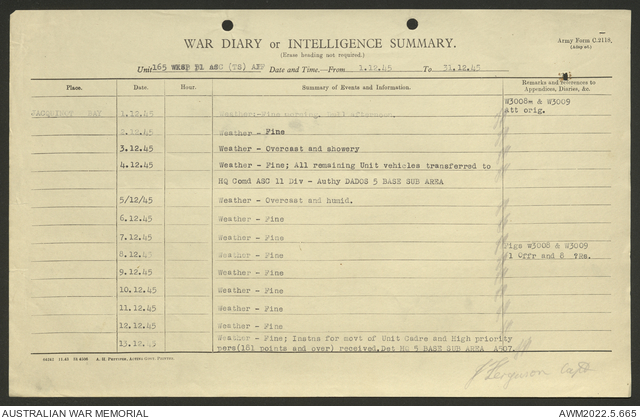 WAR DIARY or INTELLIGENCE SUMMARY.
(Erase heading not required.)
Army Form C.2118.
Unit 165 WKSP Pl ASC (TS) AIF Date and Time—From 1.12.45 To 31.12.45
Place. Date. Hour. Summary of Events and Information. Remarks and References to Appendices, Diaries, &c.
JACQUINOT BAY 1.12.45 Weather:-Fine morning. Dull afternoon. W3008 & W3009
att orig.
2.12.45 Weather - Fine
3.12.45 Weather - Overcast and showery
4.12.45 Weather - Fine; All remaining Unit vehicles transferred to
HQ Comd ASC 11 Div - Authy DADOS 5 BASE SUB AREA
5/12/45 Weather - Overcast and humid.
6.12.45 Weather - Fine
7.12.45 Weather - Fine
8.12.45 Weather - Fine Figs W3008 & W3009
1 Offr and 8
9.12.45 Weather - Fine
10.12.45 Weather - Fine
11.12.45 Weather - Fine
12.12.45 Weather - Fine
13.12.45 Weather - Fine; Instns for movt of Unit Cadre and High priority
pers(181 points and over) received.Det HQ 5 BASE SUB AREA A507.
Ferguson Capt
AUSTRALIAN WAR MEMORIAL AWM2022.5.665